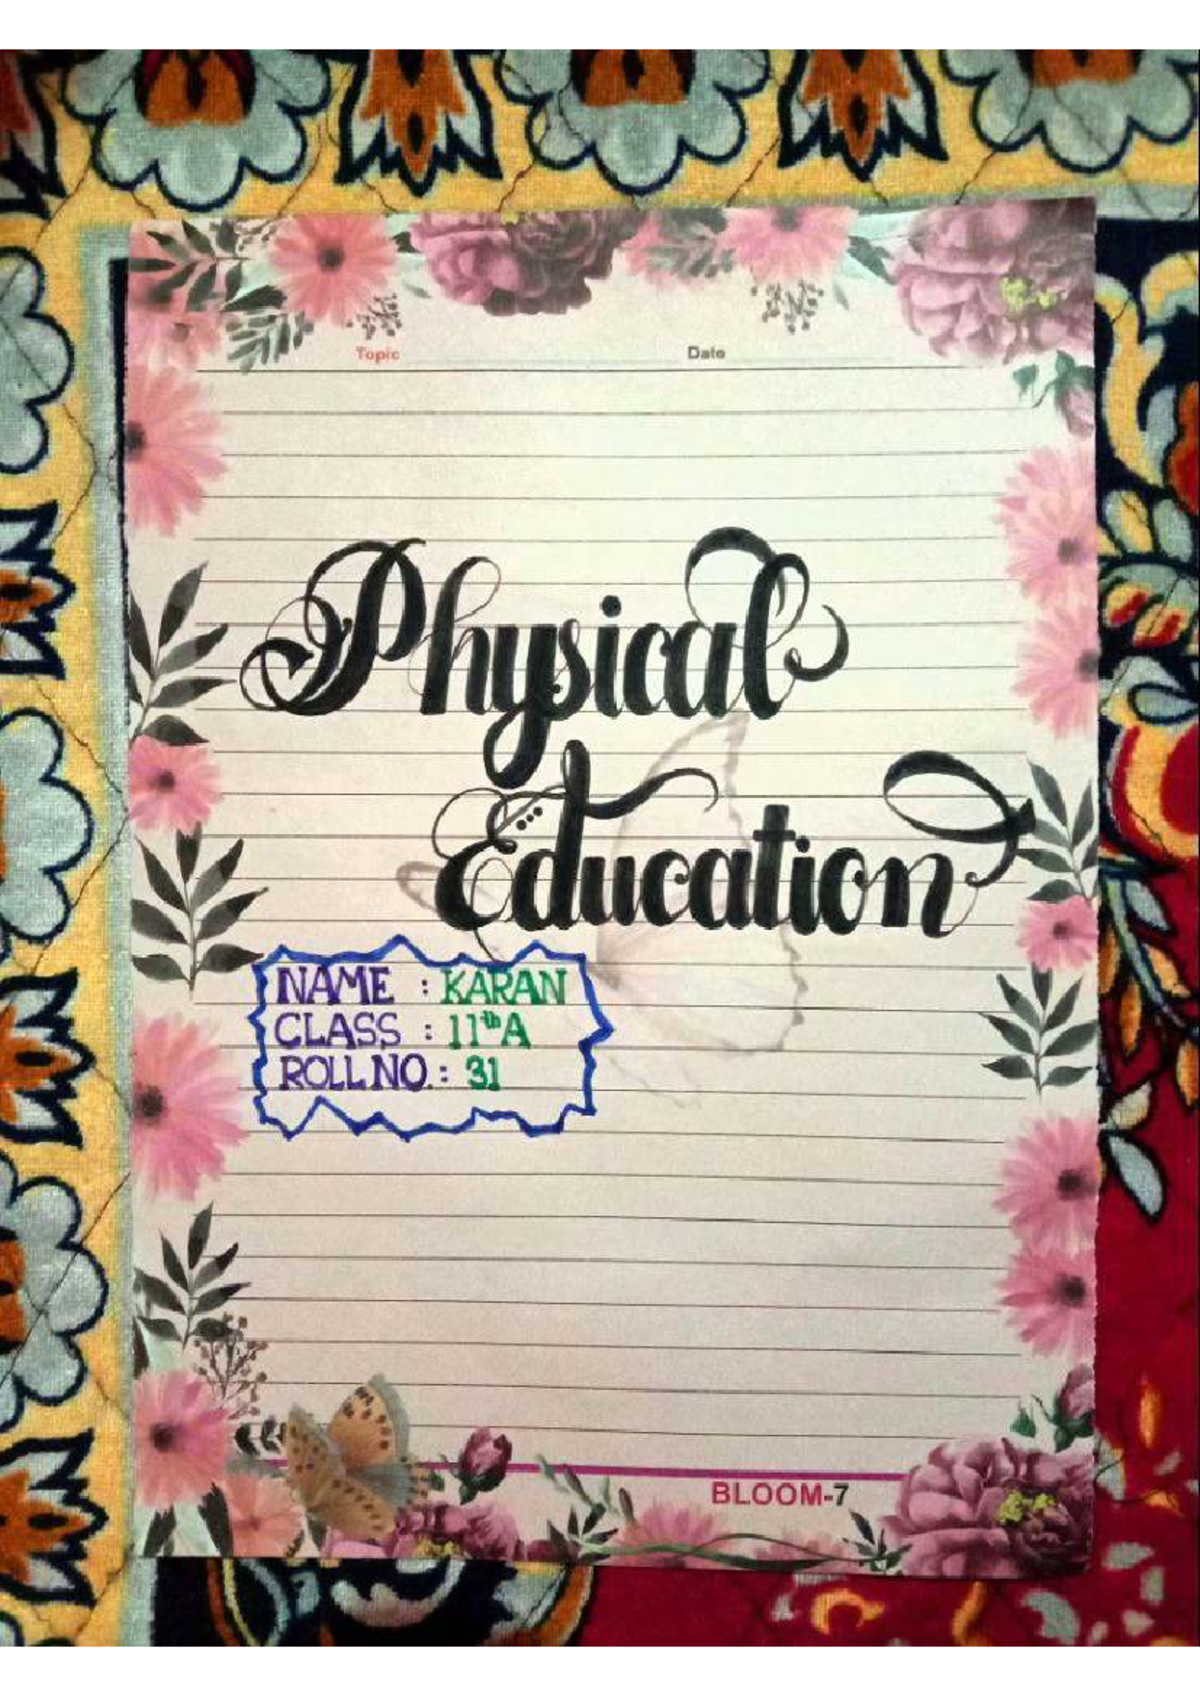 Topic Date
Physical
Education
NAME : KARAN
CLASS : 11th A
ROLL NO. : 31
BLOOM-7